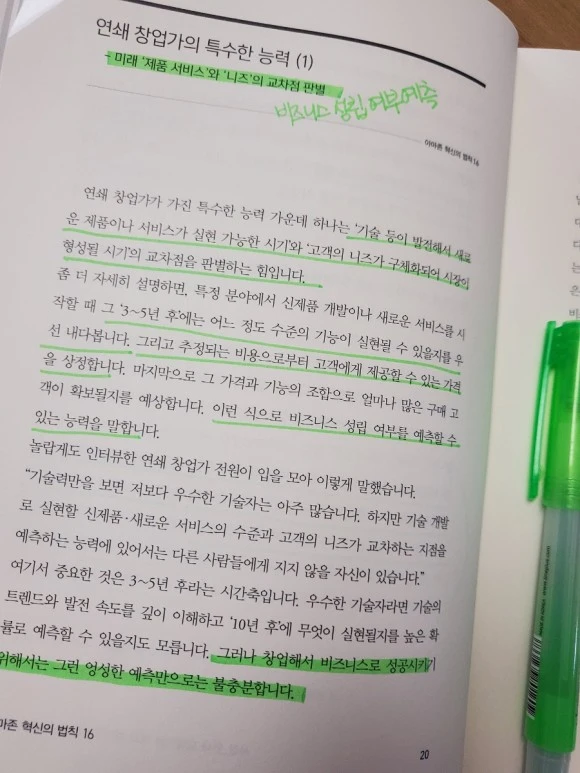 연쇄 창업가의 특수한 능력 (1)
- 미래 '제품 서비스'와 '니즈'의 교차점 판별
비즈니스 성립 여부 예측
아마존 혁신의 법칙 16
연쇄 창업가가 가진 특수한 능력 가운데 하나는 '기술 등이 발전해서 새로
운 제품이나 서비스가 실현 가능한 시기'와 '고객의 니즈가 구체화되어 시장이
형성될 시기'의 교차점을 판별하는 힘입니다.
좀 더 자세히 설명하면, 특정 분야에서 신제품 개발이나 새로운 서비스를 시
작할 때 그 '3~5년 후'에는 어느 정도 수준의 기능이 실현될 수 있을지를 우
선 내다봅니다. 그리고 추정되는 비용으로부터 고객에게 제공할 수 있는 가격
을 상정합니다. 마지막으로 그 가격과 기능의 조합으로 얼마나 많은 구매 고
객이 확보될지를 예상합니다. 이런 식으로 비즈니스 성립 여부를 예측할 수
있는 능력을 말합니다.
놀랍게도 인터뷰한 연쇄 창업가 전원이 입을 모아 이렇게 말했습니다.
"기술력만을 보면 저보다 우수한 기술자는 아주 많습니다. 하지만 기술 개발
로 실현할 신제품·새로운 서비스의 수준과 고객의 니즈가 교차하는 지점을
예측하는 능력에 있어서는 다른 사람들에게 지지 않을 자신이 있습니다."
여기서 중요한 것은 3~5년 후라는 시간축입니다. 우수한 기술자라면 기술의
트렌드와 발전 속도를 깊이 이해하고 '10년 후'에 무엇이 실현될지를 높은 확
률로 예측할 수 있을지도 모릅니다. 그러나 창업해서 비즈니스로 성공시키기
위해서는 그런 엉성한 예측만으로는 불충분합니다.
마존 혁신의 법칙 16
20